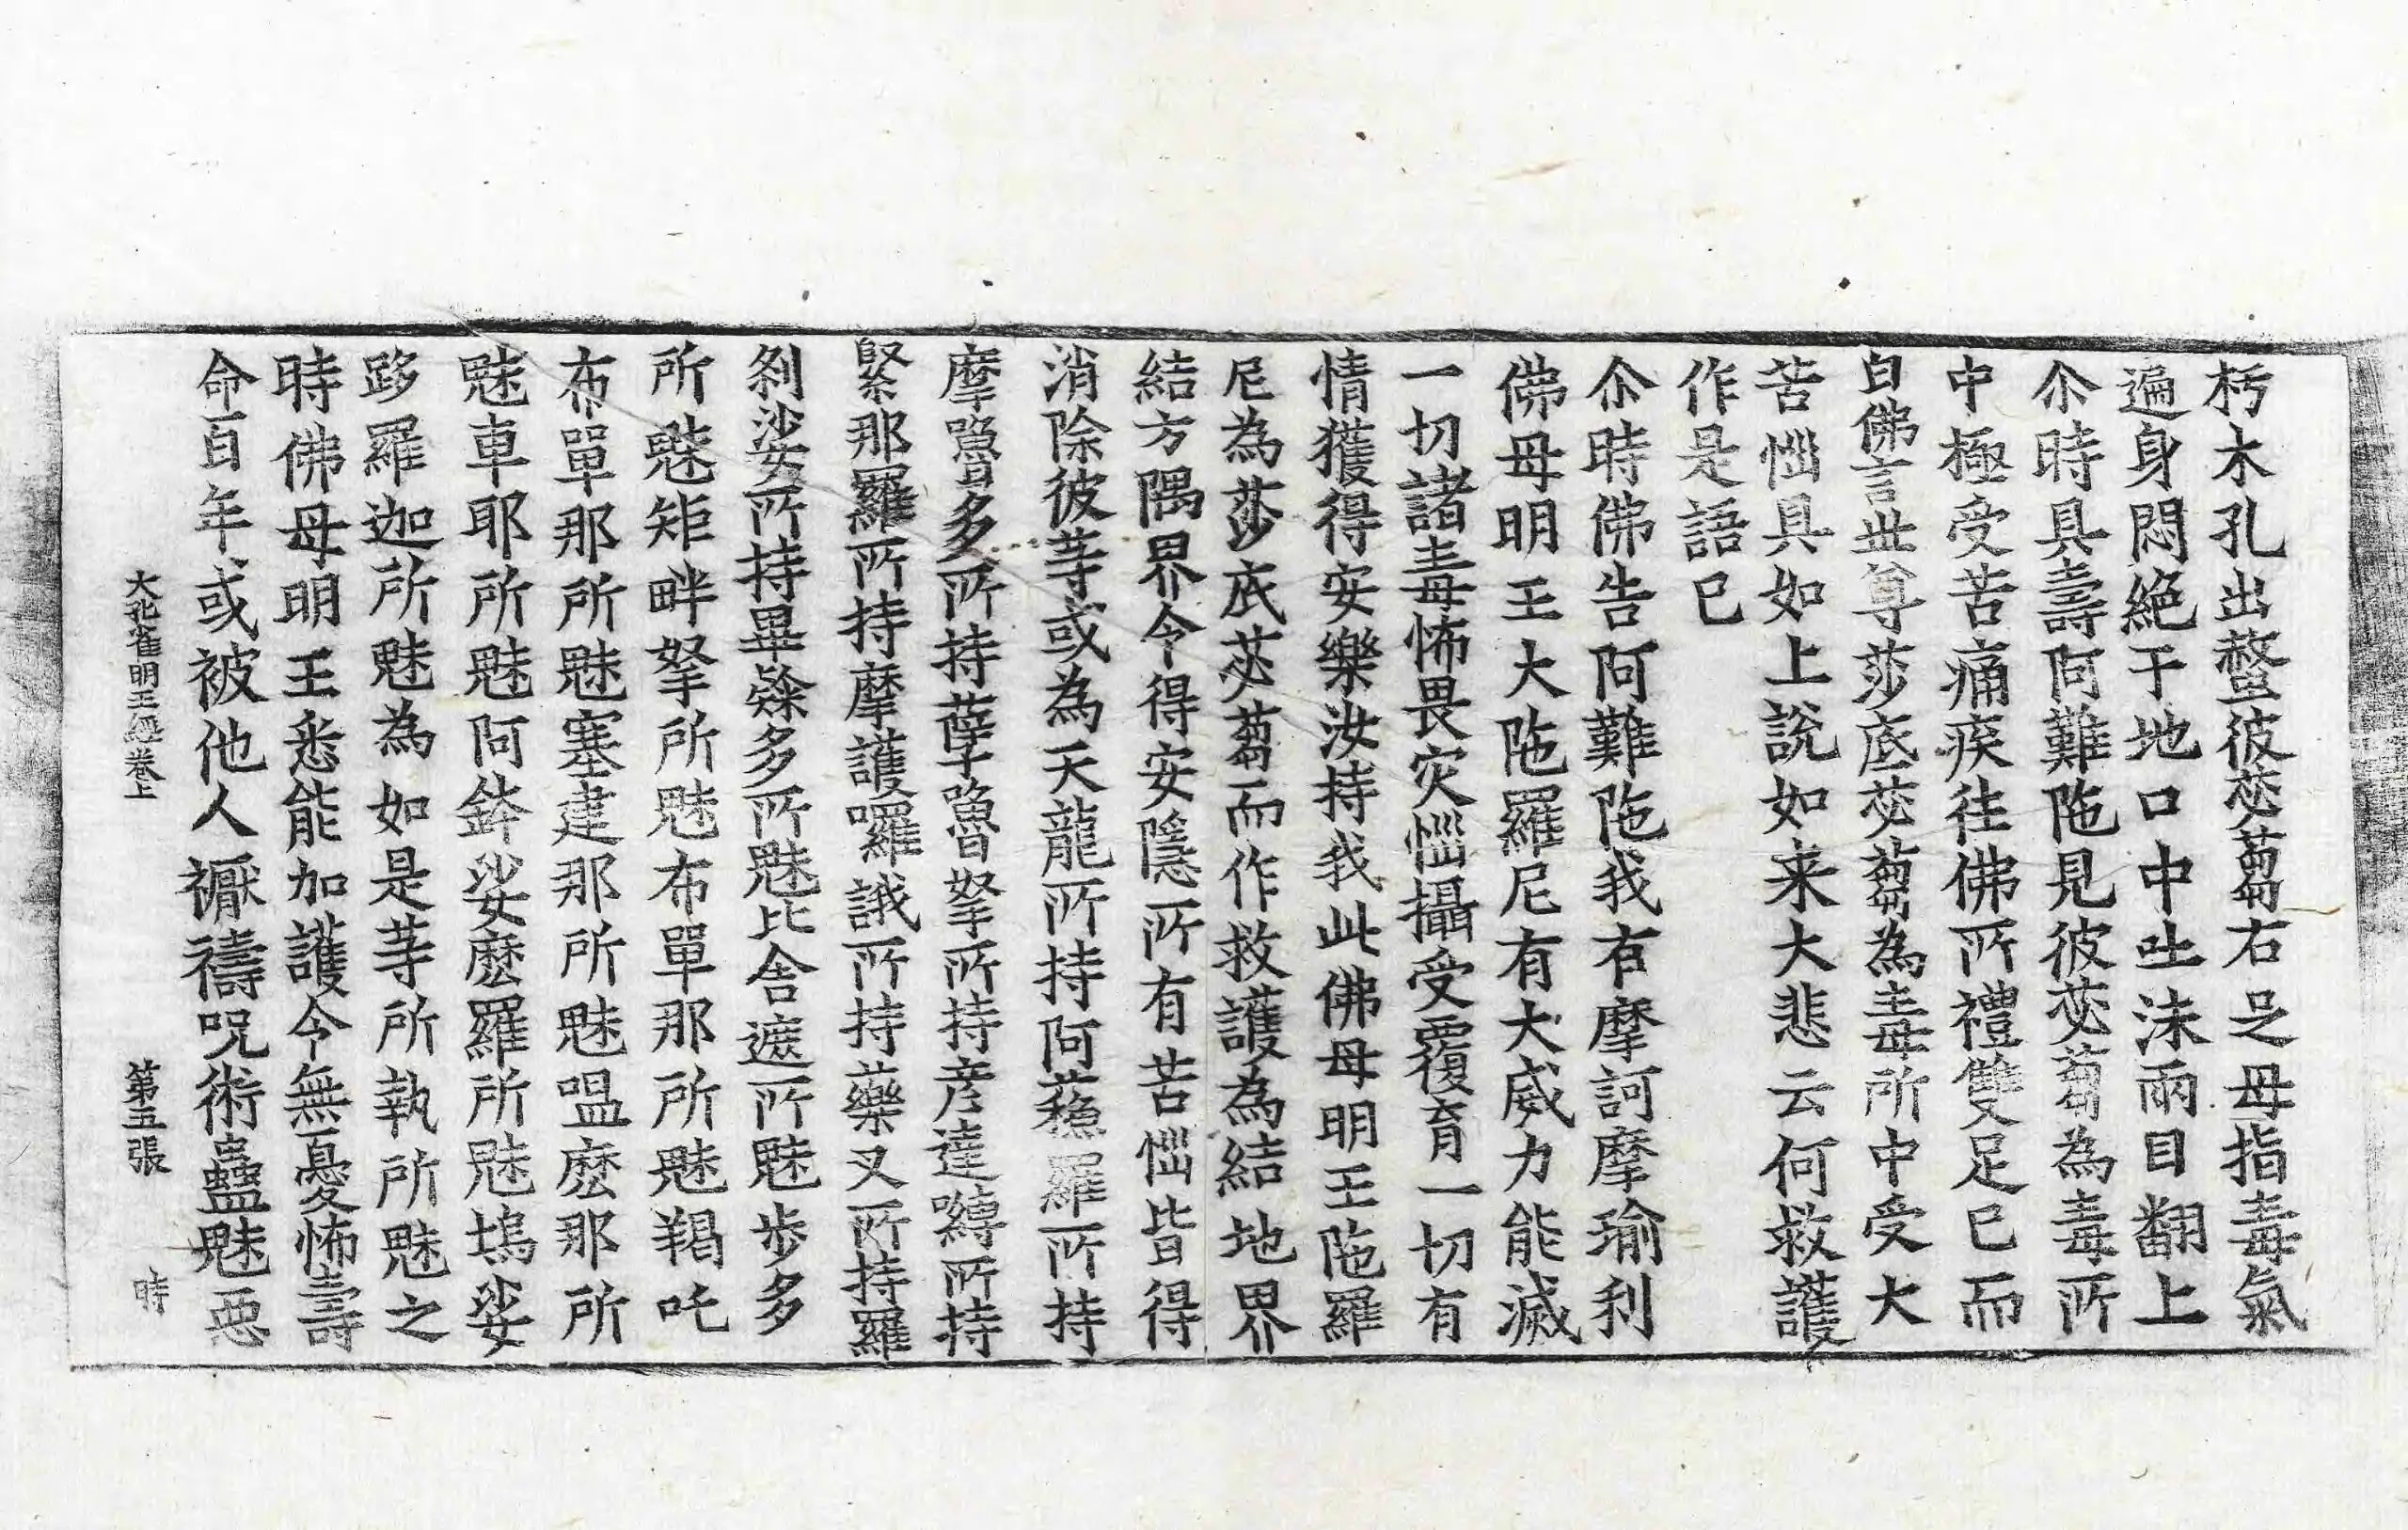 朽木孔出螫彼苾蒭右足毋指毒氣
遍身悶絕于地口中吐沫兩目翻上
尒時具壽阿難陁見彼苾蒭為毒所
中極受苦痛疾往佛所禮雙足已而
白佛言世尊莎底苾蒭為毒所中受大
苦惱具如上說如来大悲云何救護
作是語已
尒時佛告阿難陁我有摩訶摩瑜利
佛母明王大陁羅尼有大威力能滅
一切諸毒怖畏灾惱攝受覆育一切有
情獲得安樂汝持我此佛母明王陁羅
尼為莎底苾蒭而作救護為結地界
結方隅界令得安隱所有苦惱皆得
消除彼䓁或為天龍所持阿蘓羅所持
摩嚕多所持孽嚕拏所持彦達嚩所持
緊那羅所持摩護囉誐所持藥叉所持羅
剎娑所持畢㘑多所魅比舍遮所魅步多
所魅矩畔拏所魅布單那所魅羯吒
布單那所魅塞建那所魅嗢麽那所
魅車耶所魅阿鉢娑麽羅所魅塢娑
跢羅迦所魅為如是䓁所執所魅之
時佛母明王悉能加護令無憂怖壽
命百年或被他人禠禱呪術蠱魅惡
大孔雀明王經卷上　第五張　時